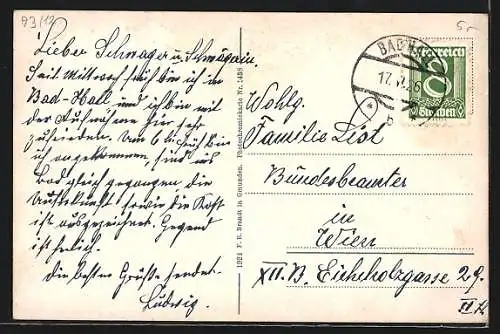 93/12
Lieber Schwager u. Schwägerin
Seit Mittwoch früh bin ich in
Bad-Hall und ich bin mit
der Aufnahme hier sehr
zufrieden. Um 6 h früh bin
ich angekommen, sind ins
Bad gleich gegangen die
Auskunft sowie die Kost
ist ausgezeichnet. Gegend
ist herlich.
die besten Grüße sendet
Ludwig.
1924 F. E. Brandt in Gmunden. Photochromiekarte Nr. 1458
BAD HALL
17. V. 26
b
Österreich
8
Groschen
Wohlg.
Familie List
Bundesbeamter
in
Wien
XII. B. Eichholzgasse 29.